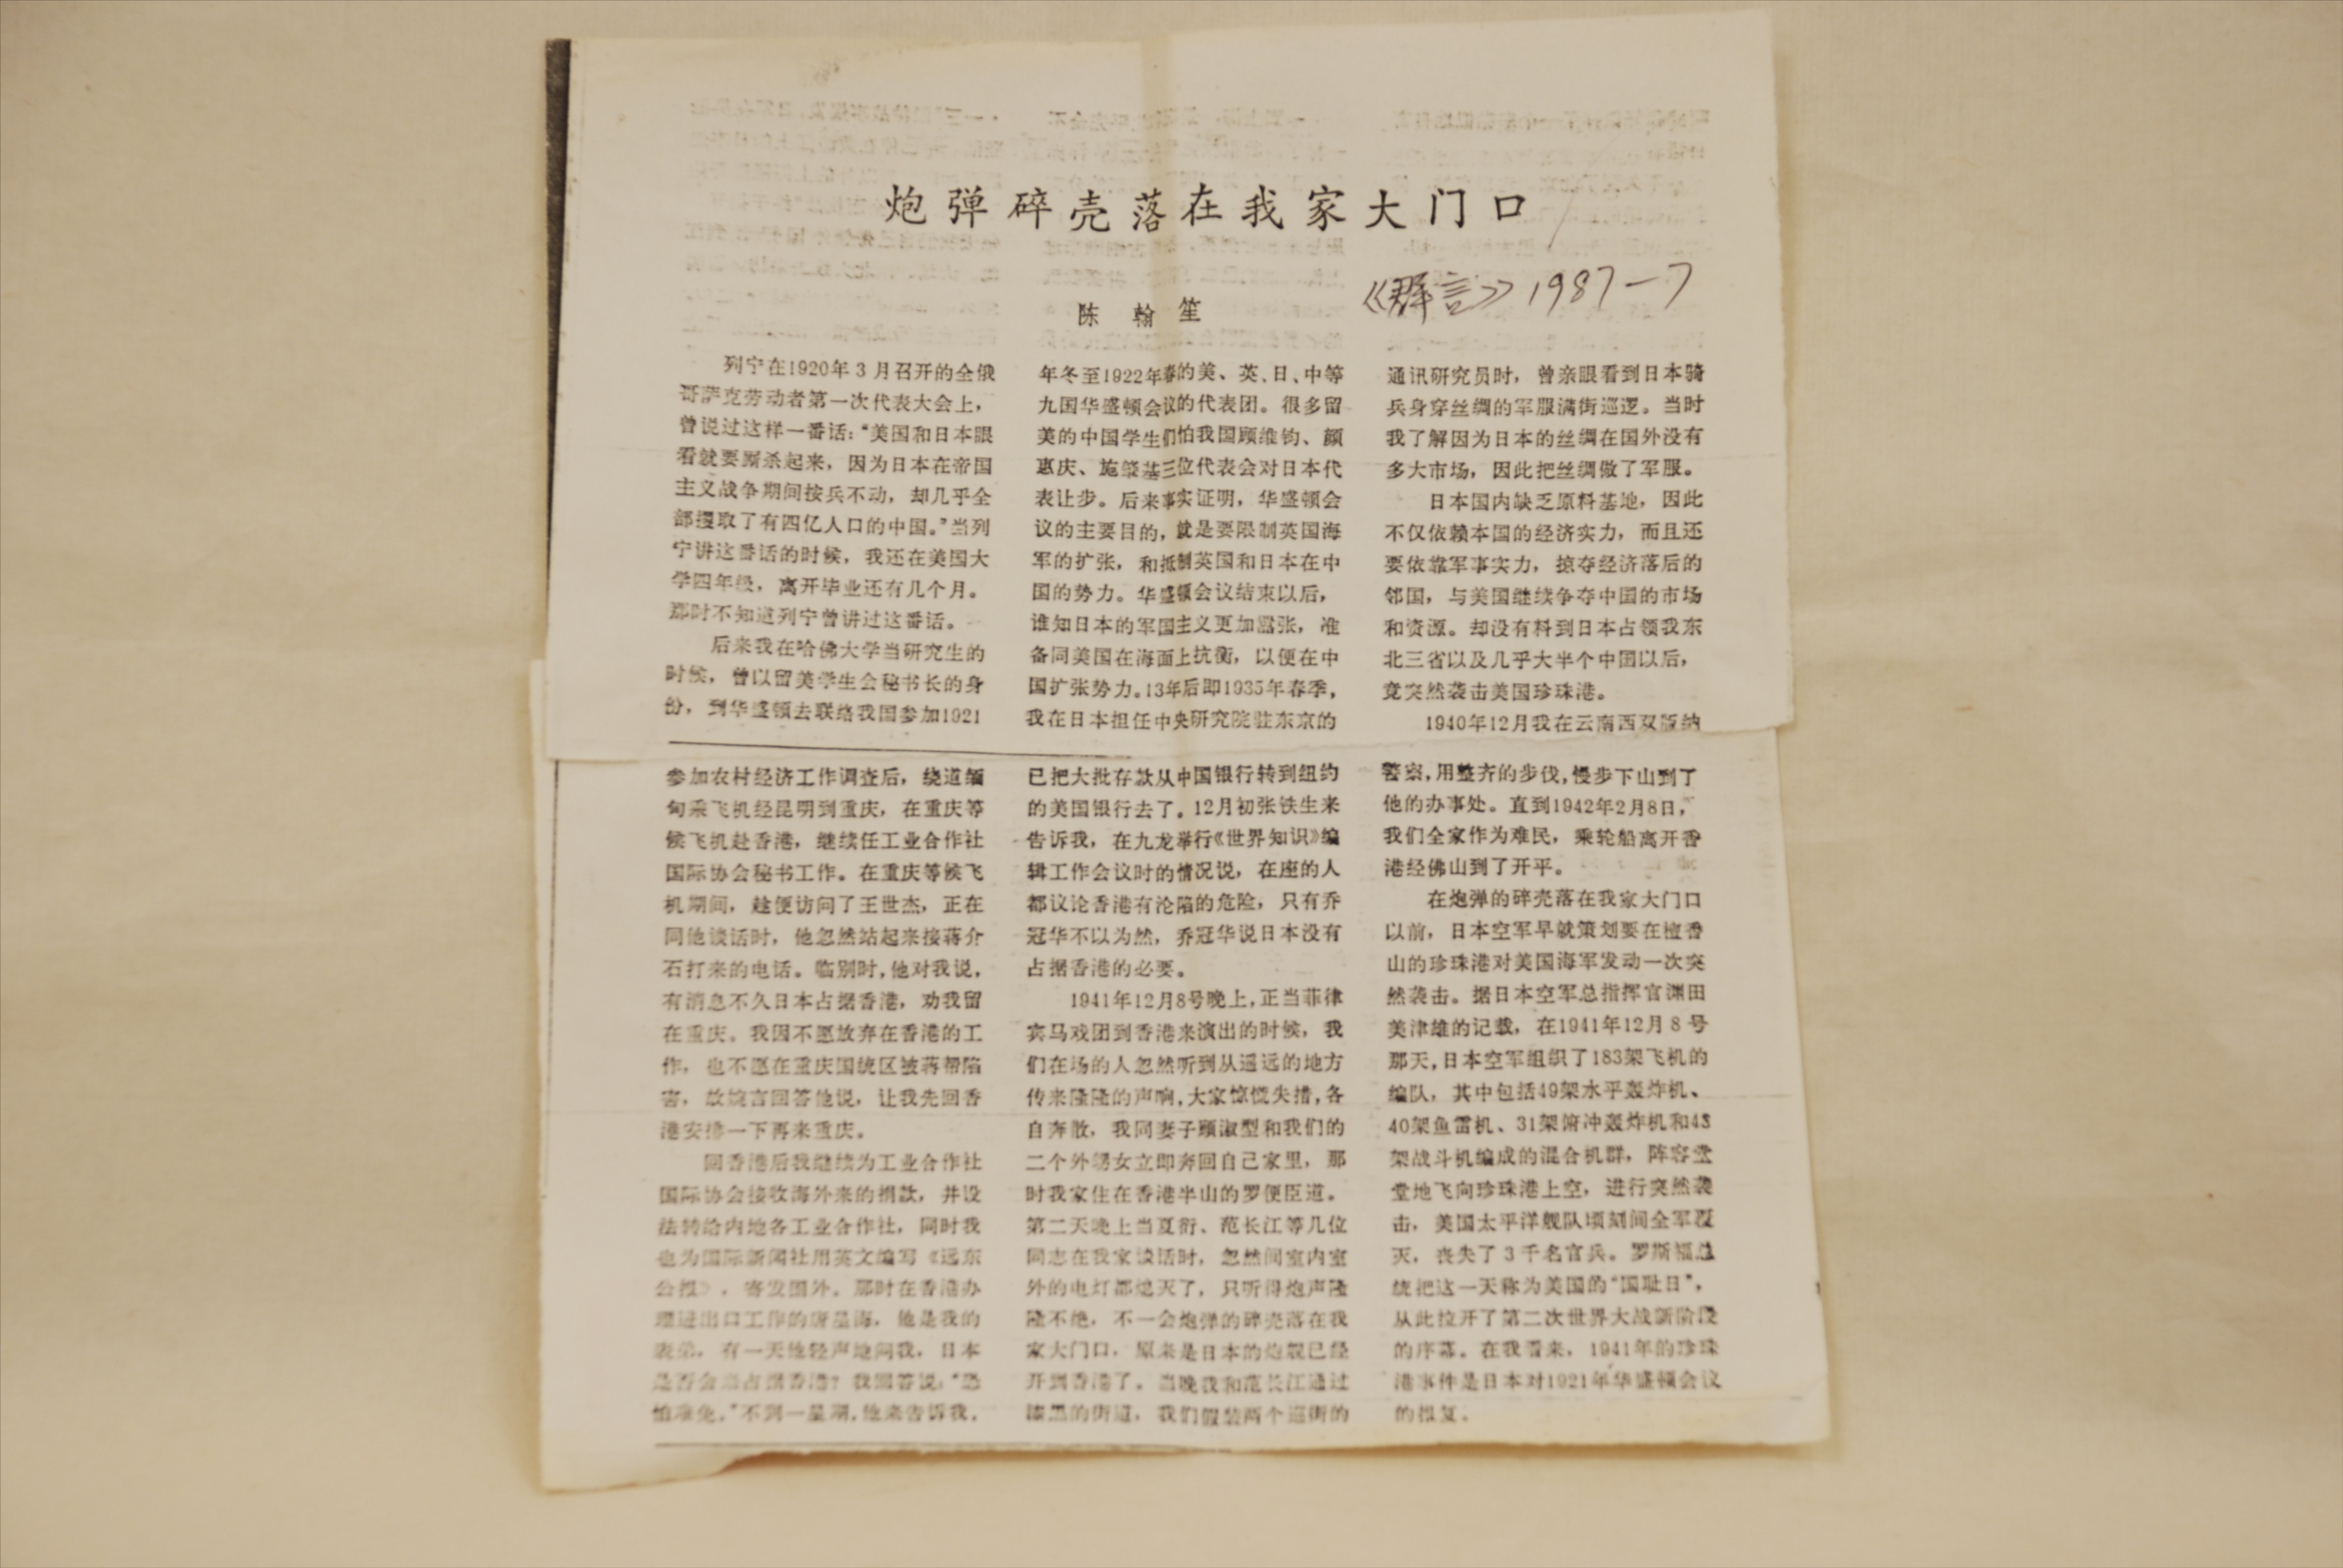 炮弹碎壳落在我家大门口
《群言》1987-7
陈翰笙
列宁在1920年3月召开的全俄
哥萨克劳动者第一次代表大会上，
曾说过这样一番话：“美国和日本眼
看就要厮杀起来，因为日本在帝国
主义战争期间按兵不动，却几乎全
部攫取了有四亿人口的中国。”当列
宁讲这番话的时候，我还在美国大
学四年级，离开毕业还有几个月。
那时不知道列宁曾讲过这番话。
后来我在哈佛大学当研究生的
时候，曾以留美学生会秘书长的身
份，到华盛顿去联络我国参加1921
年冬至1922年春的美、英、日、中等
九国华盛顿会议的代表团。很多留
美的中国学生们怕我国顾维钧、颜
惠庆、施肇基三位代表会对日本代
表让步。后来事实证明，华盛顿会
议的主要目的，就是要限制英国海
军的扩张，和抵制英国和日本在中
国的势力。华盛顿会议结束以后，
谁知日本的军国主义更加嚣张，准
备同美国在海面上抗衡，以便在中
国扩张势力。13年后即1935年春季，
我在日本担任中央研究院驻东京的
通讯研究员时，曾亲眼看到日本骑
兵身穿丝绸的军服满街巡逻。当时
我了解因为日本的丝绸在国外没有
多大市场，因此把丝绸做了军服。
日本国内缺乏原料基地，因此
不仅依赖本国的经济实力，而且还
要依靠军事实力，掠夺经济落后的
邻国，与美国继续争夺中国的市场
和资源。却没有料到日本占领我东
北三省以及几乎大半个中国以后，
竟突然袭击美国珍珠港。
1940年12月我在云南西双版纳
参加农村经济工作调查后，绕道缅
甸乘飞机经昆明到重庆，在重庆等
候飞机赴香港，继续任工业合作社
国际协会秘书工作。在重庆等候飞
机期间，趁便访问了王世杰，正在
同他谈话时，他忽然站起来接蒋介
石打来的电话。临别时，他对我说，
有消息不久日本占据香港，劝我留
在重庆。我因不愿放弃在香港的工
作，也不愿在重庆国统区被蒋帮陷
害，故婉言回答他说，让我先回香
港安排一下再来重庆。
回香港后我继续为工业合作社
国际协会接收海外来的捐款，并设
法转给内地各工业合作社，同时我
也为国际新闻社用英文编写《远东
公报》，寄发国外。那时在香港办
理进出口工作的唐星海，他是我的
表弟，有一天他轻声地问我，日本
是否会来占据香港？我回答说：“恐
怕难免。”不到一星期，他来告诉我，
已把大批存款从中国银行转到纽约
的美国银行去了。12月初张铁生来
告诉我，在九龙举行《世界知识》编
辑工作会议时的情况说，在座的人
都议论香港有沦陷的危险，只有乔
冠华不以为然，乔冠华说日本没有
占据香港的必要。
1941年12月8号晚上，正当菲律
宾马戏团到香港来演出的时候，我
们在场的人忽然听到从遥远的地方
传来隆隆的声响，大家惊慌失措，各
自奔散，我同妻子顾淑型和我们的
二个外甥女立即奔回自己家里，那
时我家住在香港半山的罗便臣道。
第二天晚上当夏衍、范长江等几位
同志在我家谈话时，忽然间室内室
外的电灯都熄灭了，只听得炮声隆
隆不绝，不一会炮弹的碎壳落在我
家大门口，原来是日本的炮舰已经
开到香港了。当晚我和范长江通过
漆黑的街道，我们假装两个巡街的
警察，用整齐的步伐，慢步下山到了
他的办事处。直到1942年2月8日，
我们全家作为难民，乘轮船离开香
港经佛山到了开平。
在炮弹的碎壳落在我家大门口
以前，日本空军早就策划要在檀香
山的珍珠港对美国海军发动一次突
然袭击。据日本空军总指挥官渊田
美津雄的记载，在1941年12月8号
那天，日本空军组织了183架飞机的
编队，其中包括49架水平轰炸机、
40架鱼雷机、31架俯冲轰炸机和43
架战斗机编成的混合机群，阵容堂
堂地飞向珍珠港上空，进行突然袭
击，美国太平洋舰队顷刻间全军覆
灭，丧失了3千名官兵。罗斯福总
统把这一天称为美国的“国耻日”，
从此拉开了第二次世界大战新阶段
的序幕。在我看来，1941年的珍珠
港事件是日本对1921年华盛顿会议
的报复。